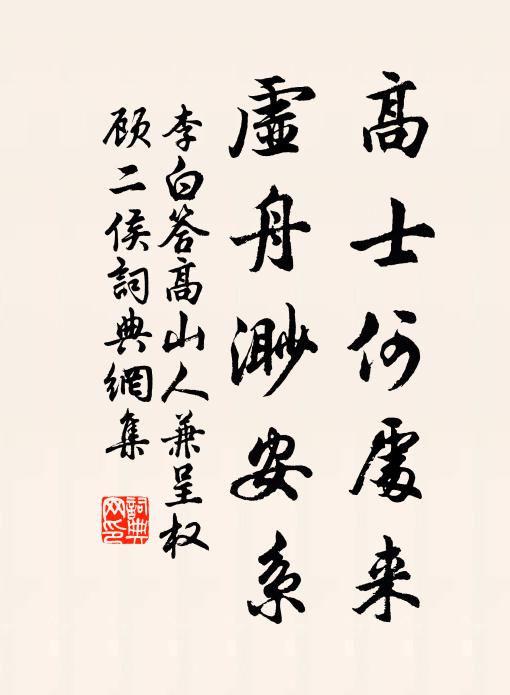 高士何處来
虛舟渺安系
李白答高山人兼呈权
顾二侯詞典網集
詞典
网印